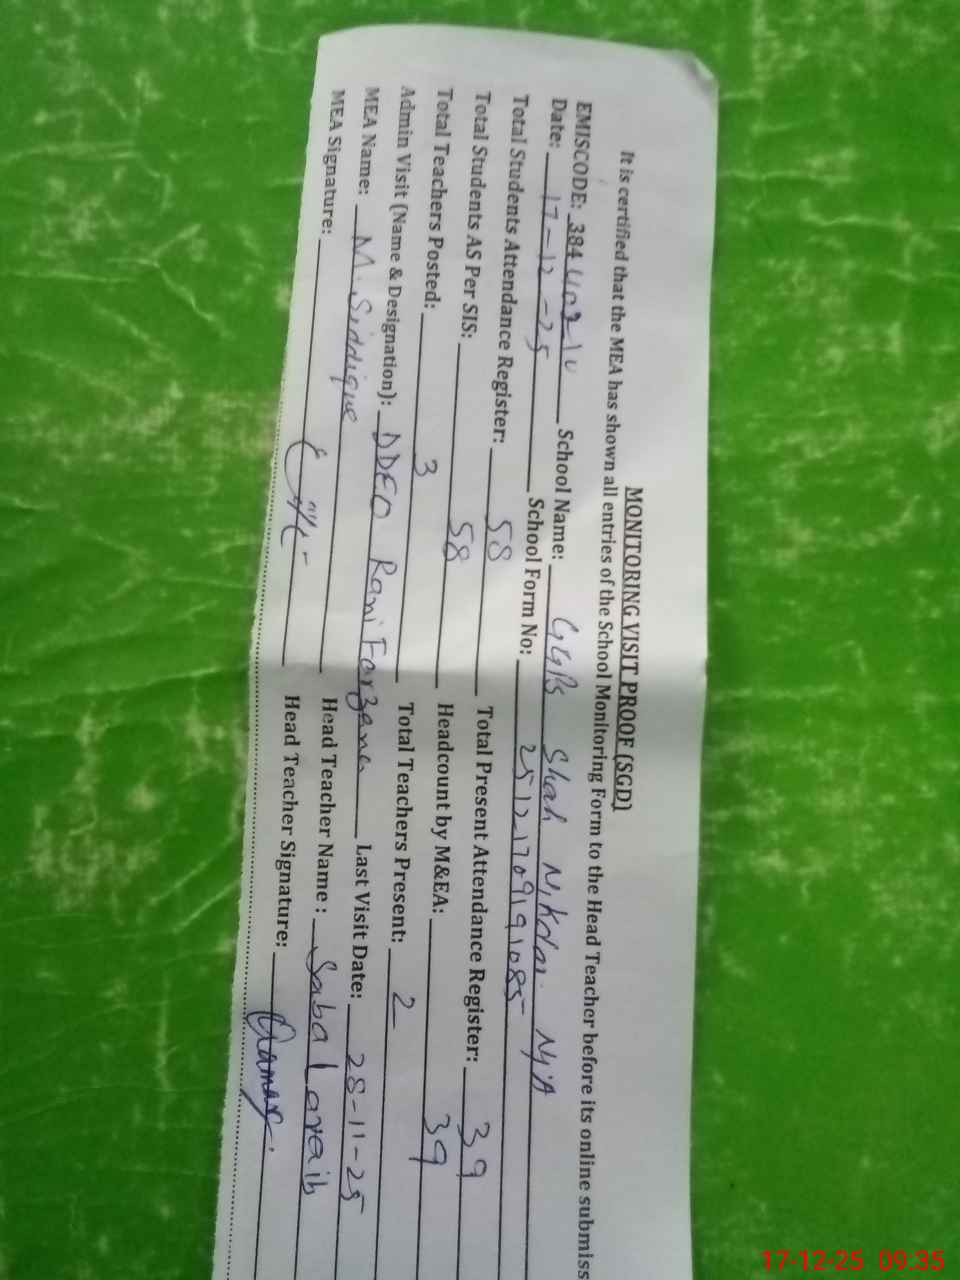 MONITORING VISIT PROOF (SGD)
It is certified that the MEA has shown all entries of the School Monitoring Form to the Head Teacher before its online submiss
EMISCODE: 384 School Name: GGPS Shah Nikdar
Date: 17-12-25 School Form No: 25121709191085
Total Students Attendance Register: 58 Total Present Attendance Register: 39
Total Students AS Per SIS: 58 Headcount by M&EA: 39
Total Teachers Posted: 3 Total Teachers Present: 2
Admin Visit (Name & Designation): DDEO Rani Farzana Last Visit Date: 28-11-25
MEA Name: M. Siddique Head Teacher Name : Saba Laraib
MEA Signature: Head Teacher Signature:
17-12-25 09.35